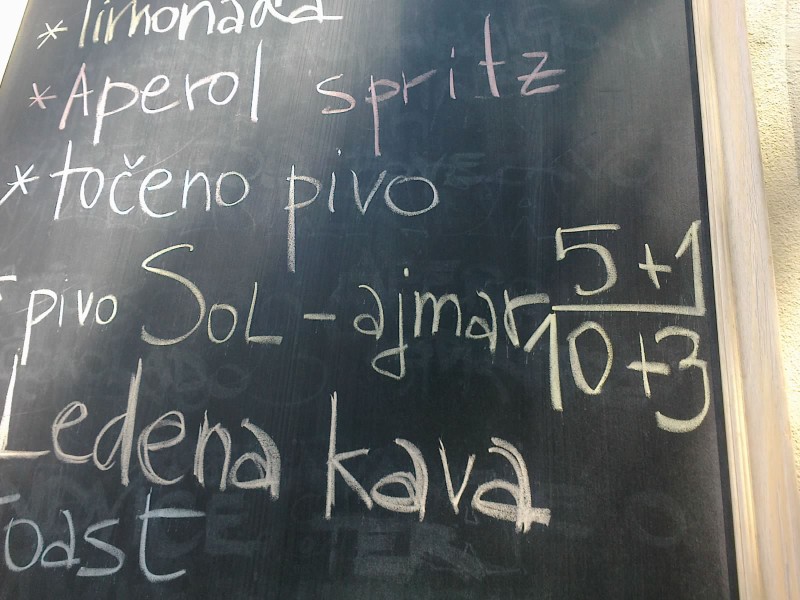 * limonada
* Aperol spritz
* točeno pivo
pivo Sol - ajmar 5+1
10+3
Ledena kava
Toast